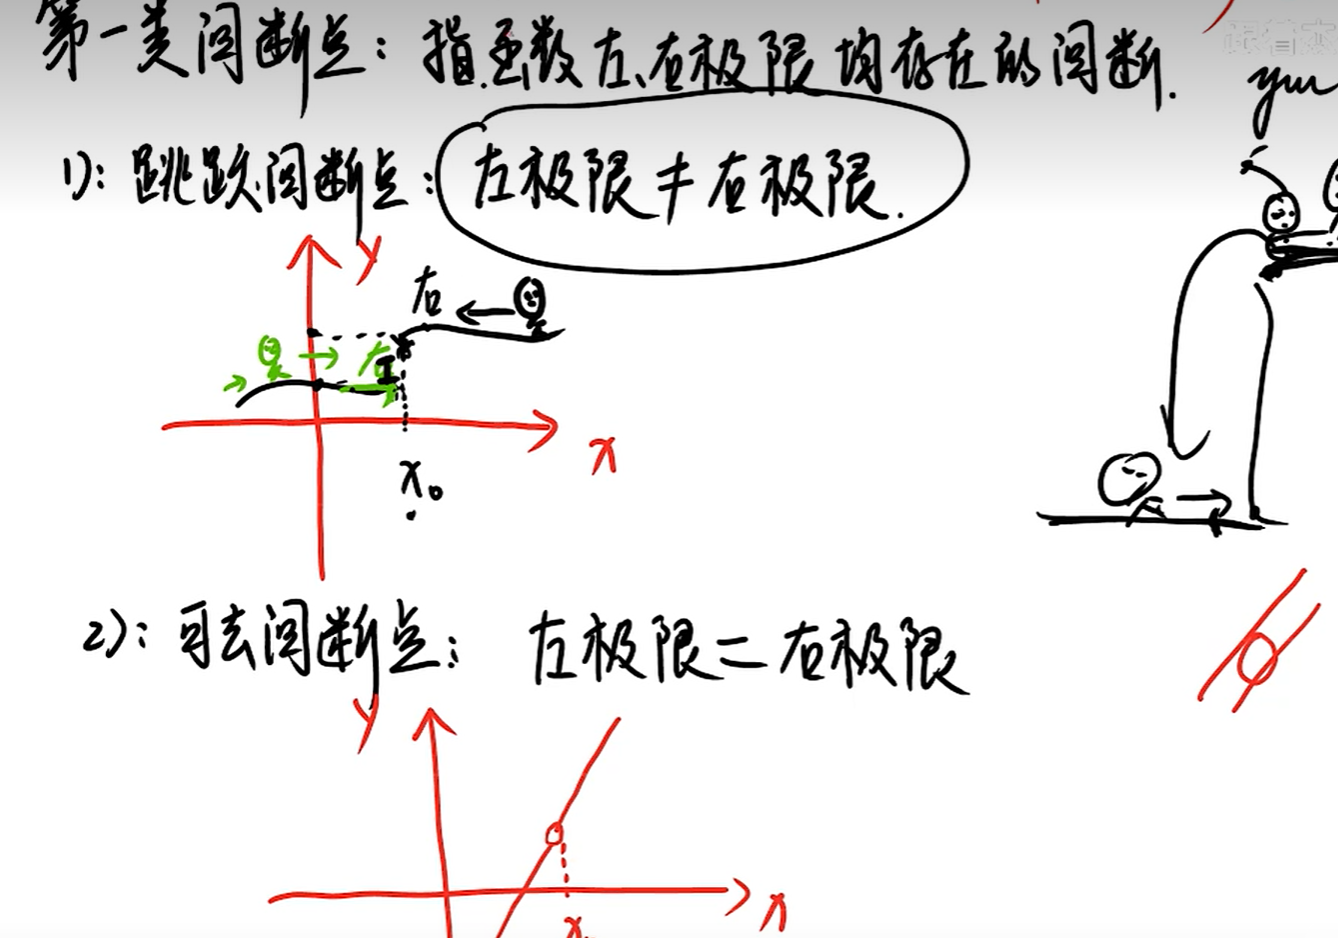 第一类间断点：指函数左、右极限均存在的间断.
1)：跳跃间断点：左极限≠右极限.
y
右
左
x
x₀
2)：可去间断点：左极限=右极限
y
x
x